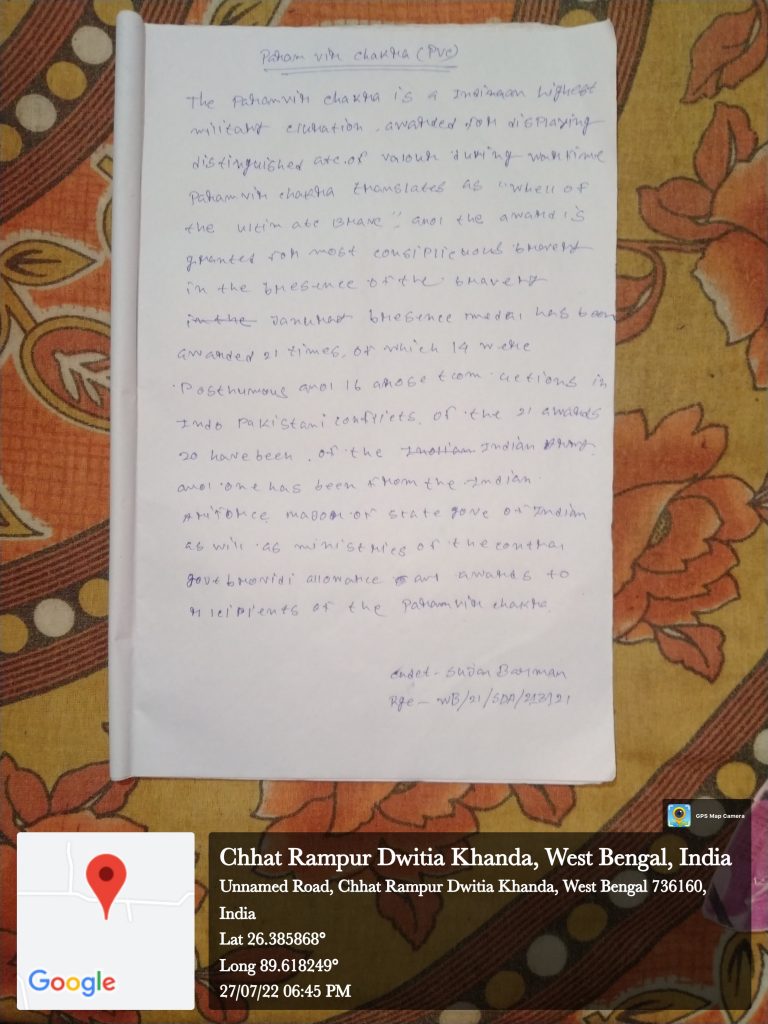 Param vir chakra (PVC)
The Paramvir chakra is a Indimaan highest
military awarded for displaying
distinguished of valour during wartime
Param vir chakra translates as "whell of
the ultim ate Brave" and the award is
granted for most bravery
in the bresence of the bravery
in the bresence medal has been
awarded 21 times, of which 14 were
Posthumous and 16 arose actions in
Indo Pakistani conflicts. of the 21 awards
20 have been of the Indian Army
and one has been from the Indian
of state gove of Indian
as will as ministries of the
govt allowance awards to
of the Paramvir chakra.
cadet - Sujan Barman
WB/21/SDA/213121
GPS Map Camera
Chhat Rampur Dwitia Khanda, West Bengal, India
Unnamed Road, Chhat Rampur Dwitia Khanda, West Bengal 736160,
India
Lat 26.385868°
Long 89.618249°
27/07/22 06:45 PM
Google